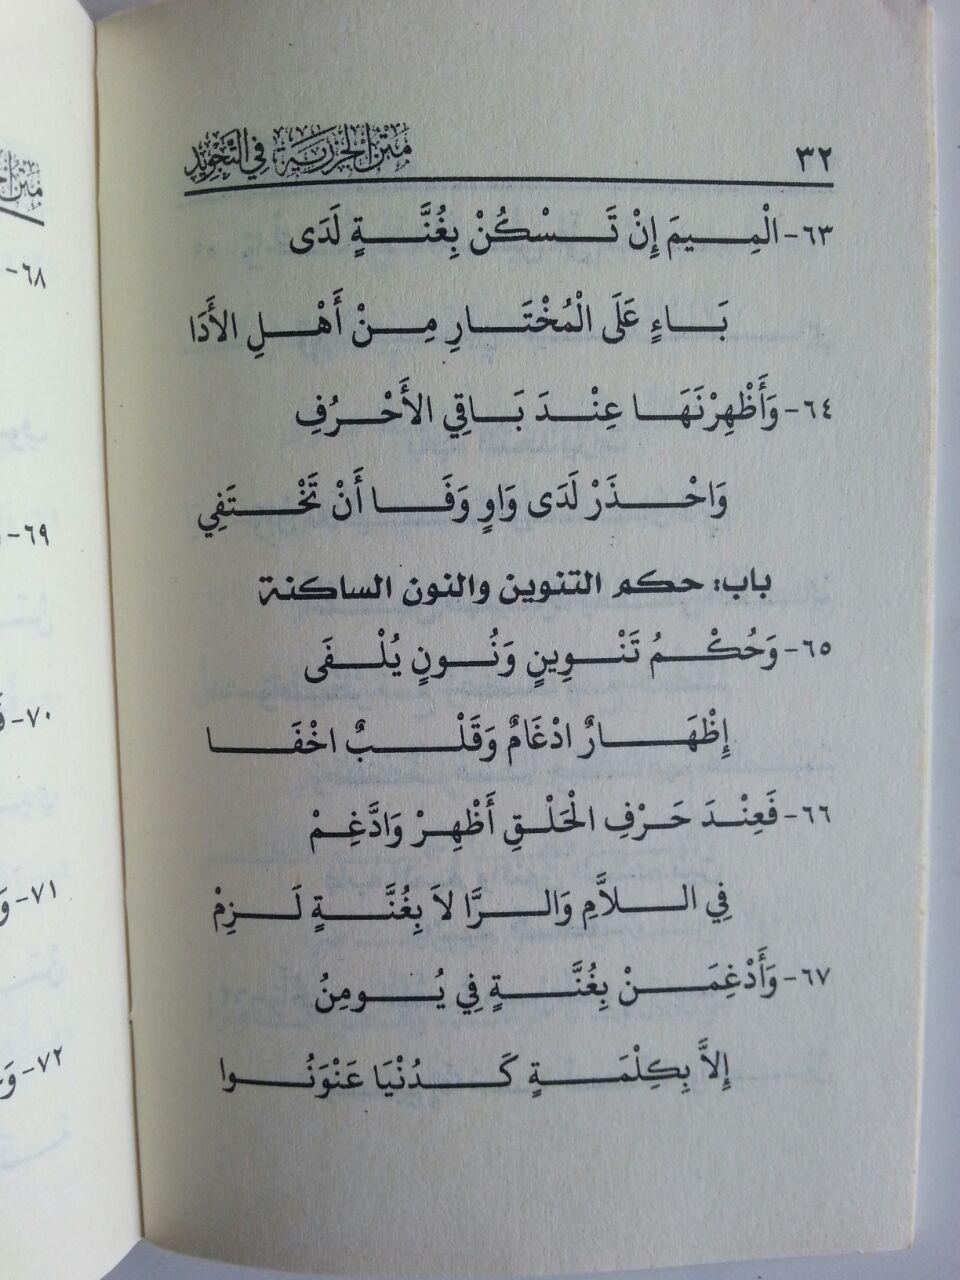 ٣٢ متن الجزرية في التجويد
٦٣- الْمِيمَ إِنْ تَسْكُنْ بِغُنَّةٍ لَدَى
بَاءٍ عَلَى الْمُخْتَارِ مِنْ أَهْلِ الأَدَا
٦٤- وَأَظْهِرْنَهَا عِنْدَ بَاقِي الأَحْرُفِ
وَاحْذَرْ لَدَى وَاوٍ وَفَا أَنْ تَخْتَفِي
باب: حكم التنوين والنون الساكنة
٦٥- وَحُكْمُ تَنْوِينٍ وَنُونٍ يُلْفَى
إِظْهَارٌ ادْغَامٌ وَقَلْبٌ اخْفَا
٦٦- فَعِنْدَ حَرْفِ الْحَلْقِ أَظْهِرْ وَادَّغِمْ
فِي اللاَّمِ وَالرَّا لاَ بِغُنَّةٍ لَزِمْ
٦٧- وَأَدْغِمَنْ بِغُنَّةٍ فِي يُومِنُ
إِلاَّ بِكِلْمَةٍ كَدُنْيَا عَنْوَنُوا
٦٨-
٦٩-
٧٠-
٧١-
٧٢-